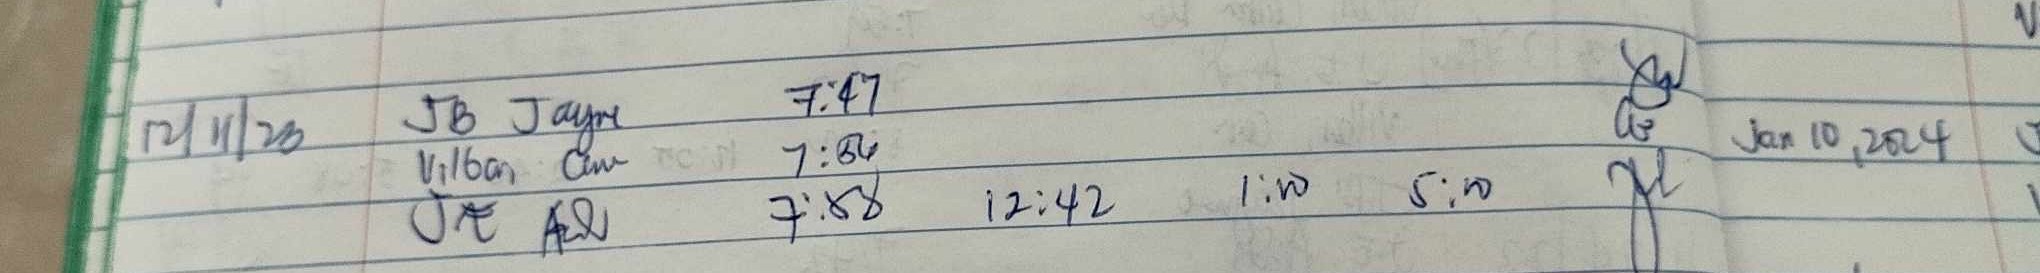 12/11/23 JB Jayre 7:47
Vilban, 7:54
JE 7:58 12:42 1:10 5:10
Jan 10, 2024